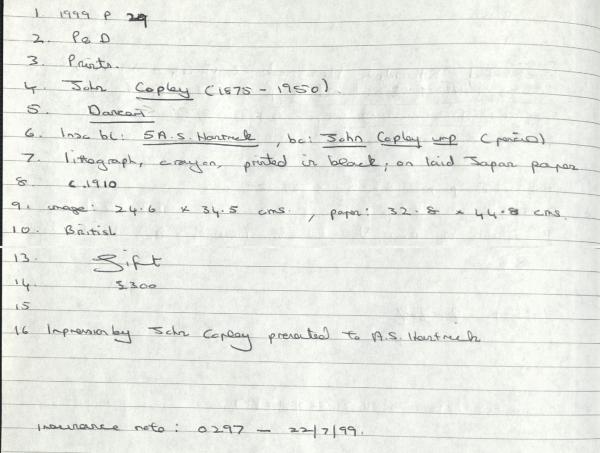 1. 1999 P 29
2. P&D
3. Prints.
4. John Copley (1875 - 1950).
5.
6. Insc bl: 5 A.S. Hartrick, bc: John Copley imp (pencil)
7. lithograph, crayon, printed in black, on laid Japan paper
8. c.1910
9. image: 24.6 x 34.5 cms., paper: 32.8 x 44.8 cms.
10. British
13. Gift
14 £300
15
16 Impression by John Copley presented to A.S. Hartrick
Insurance note: 0297 - 22/7/99.